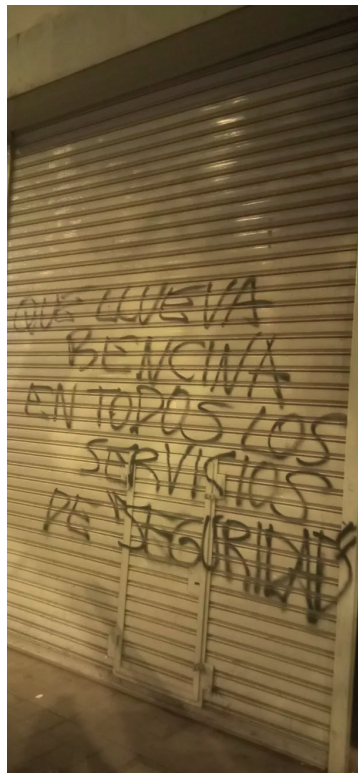 QUE LLUEVA
BENCINA
EN TODOS LOS
SERVICIOS
DE "SEGURIDAD"